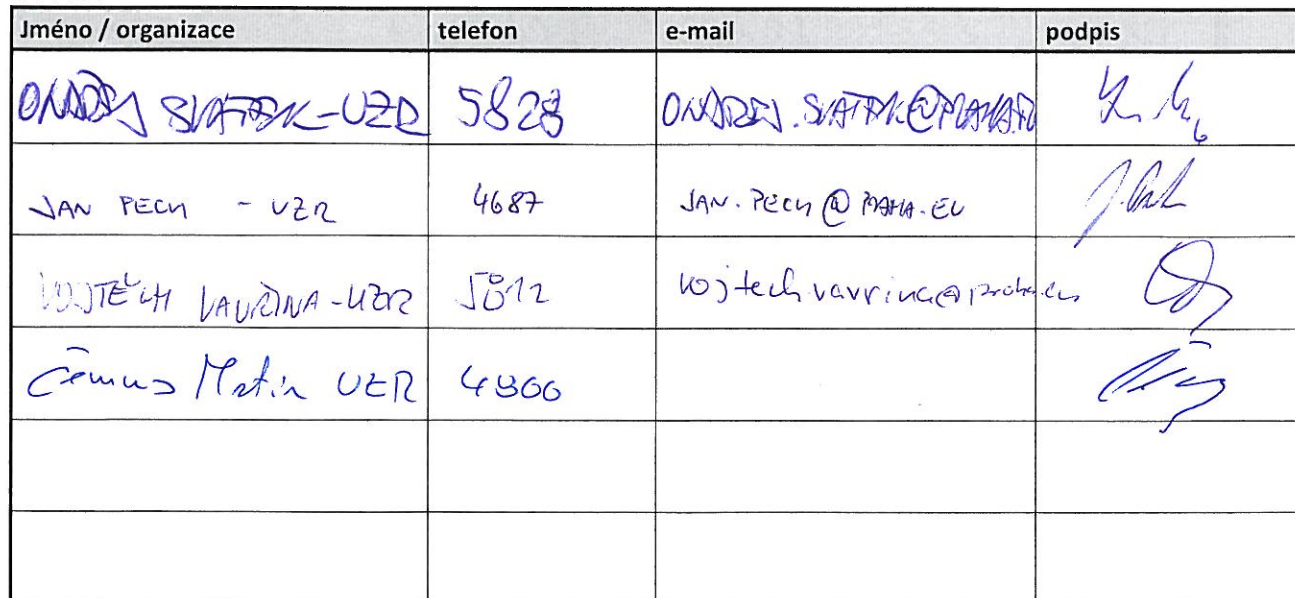 Jméno / organizace telefon e-mail podpis
ONDŘEJ SVÁTEK-UZR 5828
JAN PECH - UZR 4687 JAN.PECH@PRAHA.EU
VOJTĚCH VAVŘINA-UZR 5812 vojtech.vavrina@praha.eu
Martin UZR